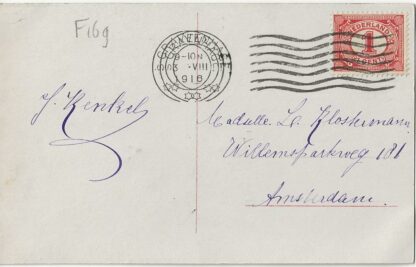 F16g
'S GRAVENHAGE
9-10 N
3 VIII
1916
NEDERLAND
1
CENT
J. Kenkel
Madlle. La. Klosterman
Willemsparkweg 181
Amsterdam.